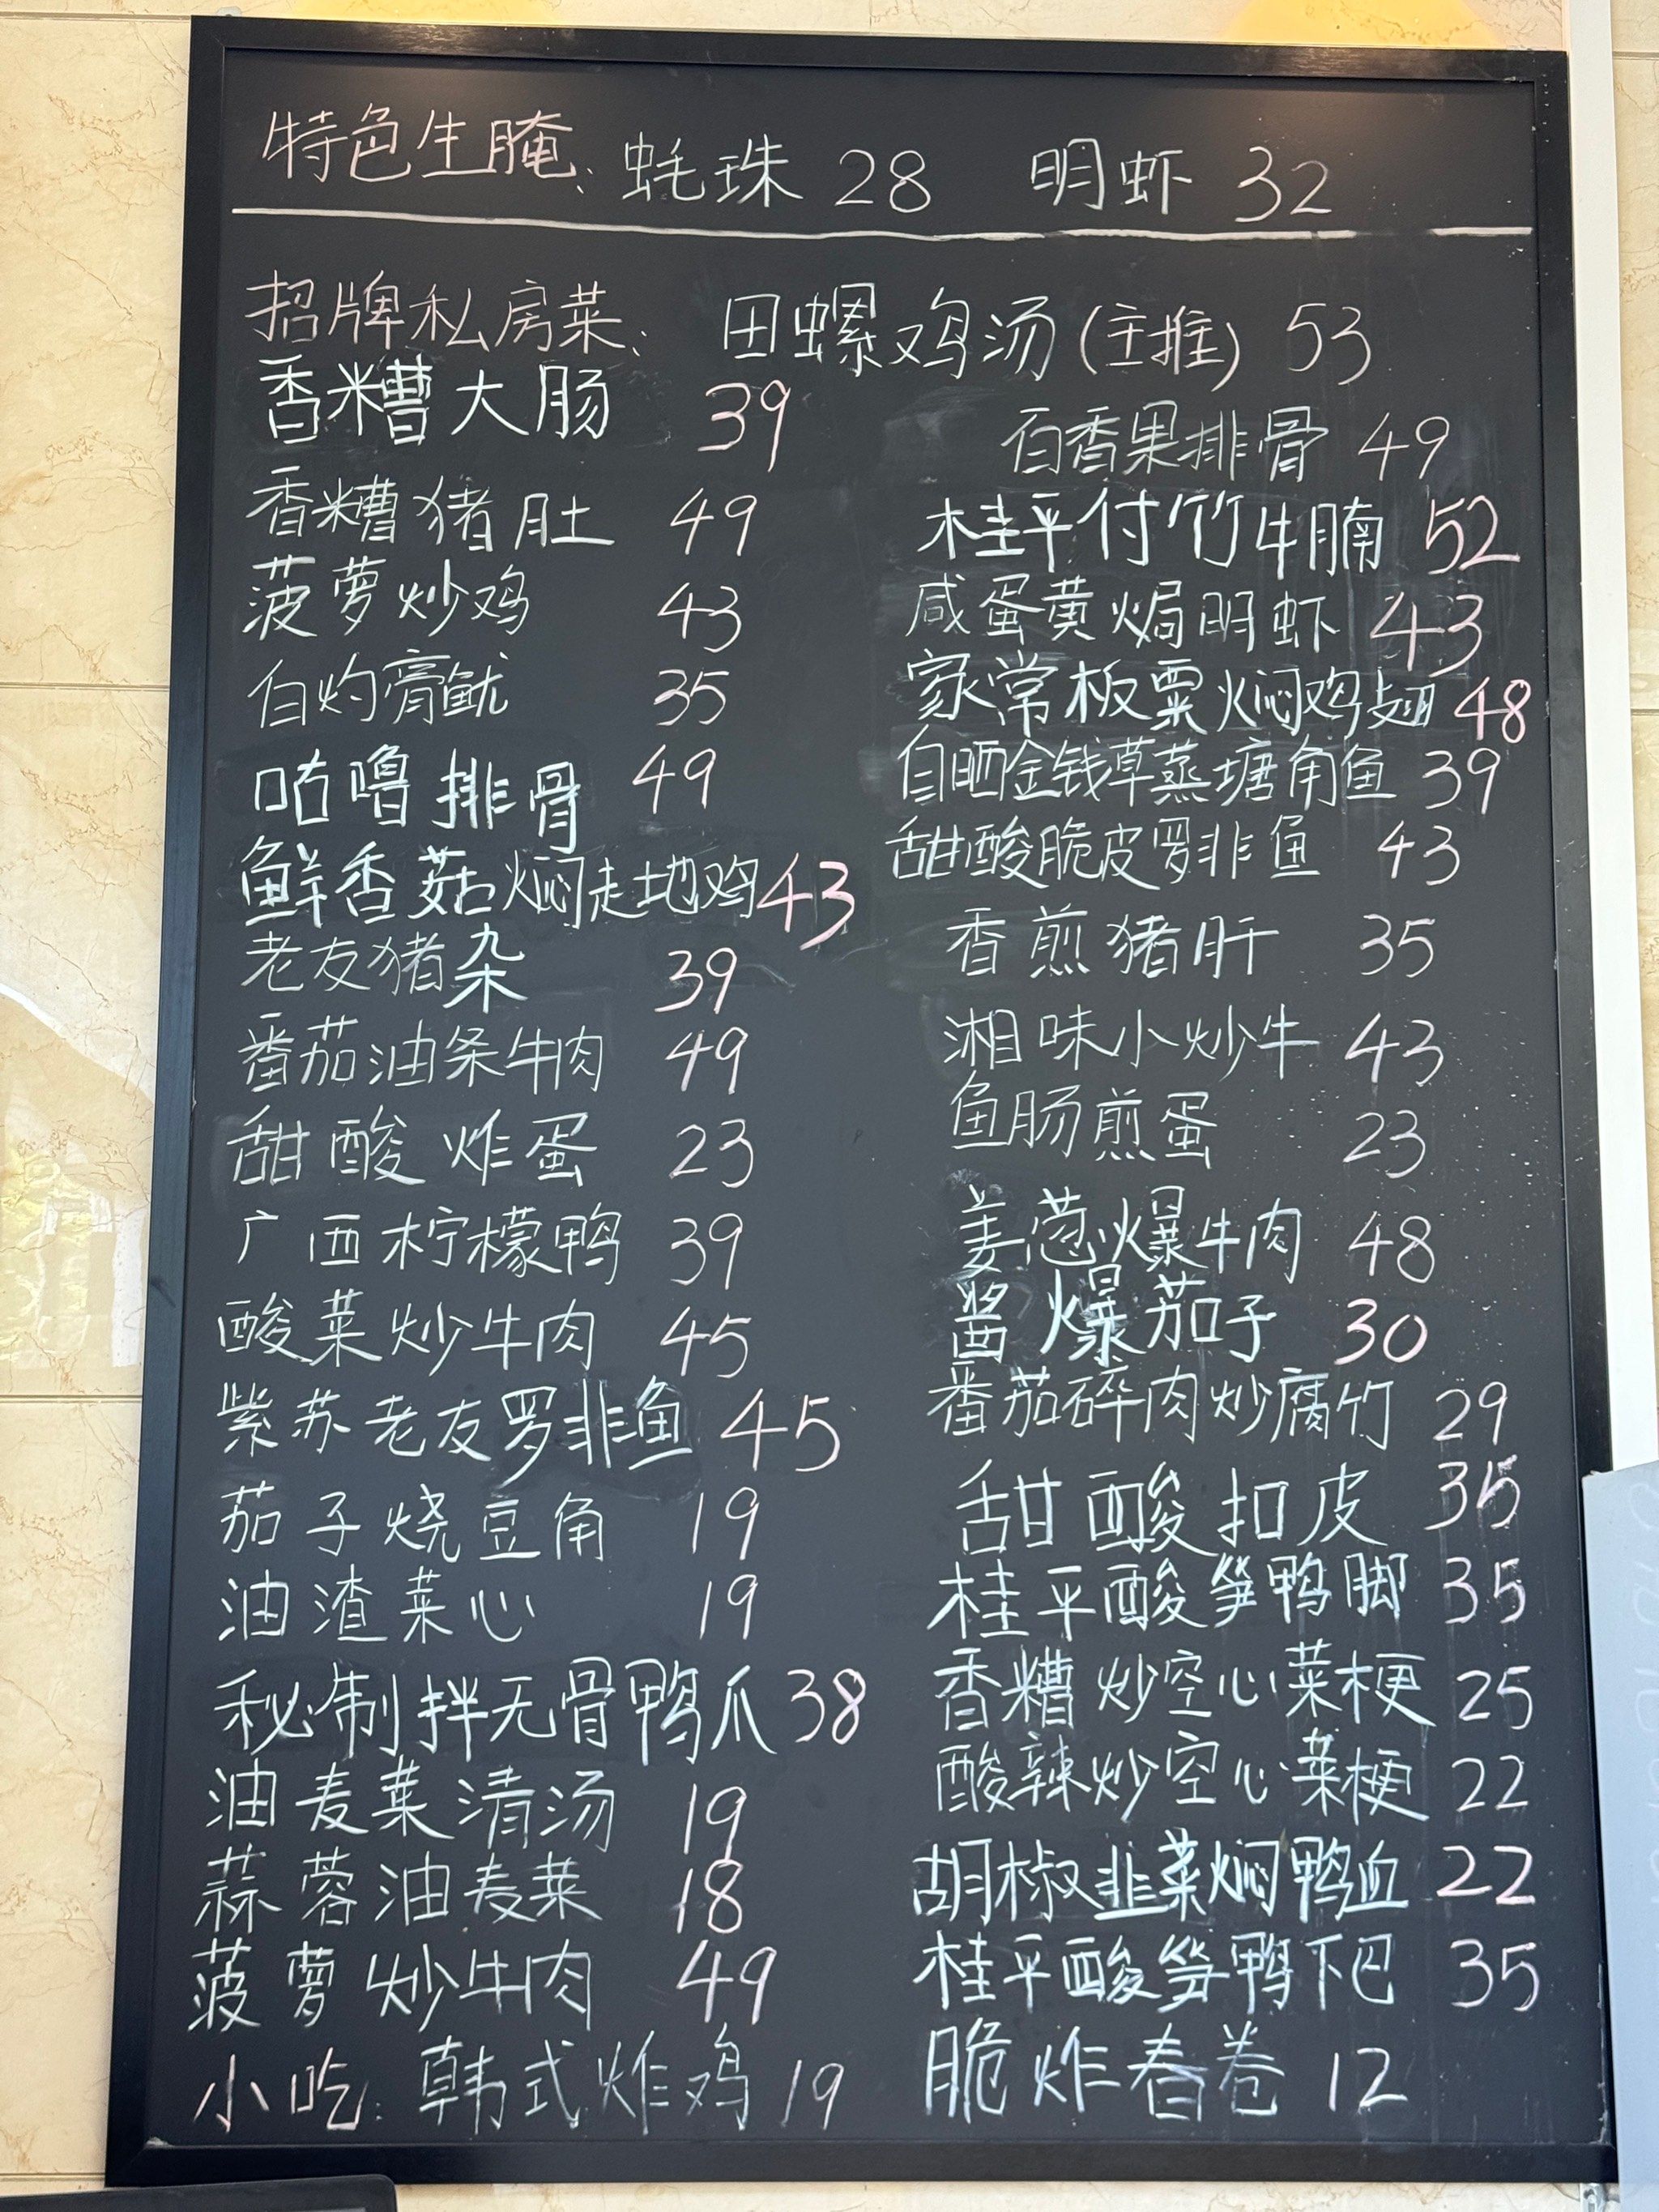 特色生腌: 蚝珠 28 明虾 32
招牌私房菜: 田螺鸡汤(主推) 53
香糟大肠 39
百香果排骨 49
香糟猪肚 49
桂平付竹牛腩 52
菠萝炒鸡 43
咸蛋黄焗明虾 43
白灼膏鱿 35
家常板粟焖鸡翅 48
咕噜排骨 49
自晒金钱草蒸塘角鱼 39
鲜香菇焖走地鸡 43
甜酸脆皮罗非鱼 43
老友猪杂 39
香煎猪肝 35
番茄油条牛肉 49
湘味小炒牛 43
甜酸炸蛋 23
鱼肠煎蛋 23
广西柠檬鸭 39
姜葱爆牛肉 48
酸菜炒牛肉 45
酱爆茄子 30
紫苏老友罗非鱼 45
番茄碎肉炒腐竹 29
茄子烧豆角 19
甜酸扣皮 35
油渣菜心 19
桂平酸笋鸭脚 35
秘制拌无骨鸭爪 38
香糟炒空心菜梗 25
油麦菜清汤 19
酸辣炒空心菜梗 22
蒜蓉油麦菜 18
胡椒韭菜焖鸭血 22
菠萝炒牛肉 49
桂平酸笋鸭下巴 35
小吃: 韩式炸鸡 19 脆炸春卷 12